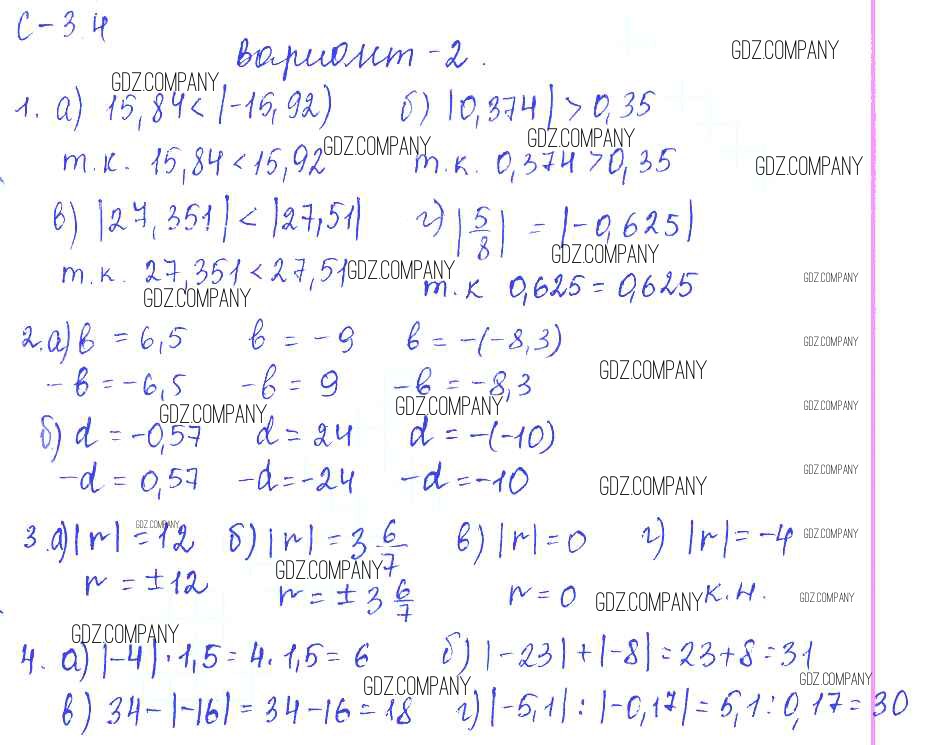 С-3.4
Вариант-2.
GDZ.COMPANY
GDZ.COMPANY
1. а) 15,84 < |-15,92) б) |0,374| > 0,35
GDZ.COMPANY GDZ.COMPANY
т.к. 15,84 < 15,92 т.к. 0,374 > 0,35
GDZ.COMPANY
в) |27,351| < |27,51| г) |5/8| = |-0,625|
GDZ.COMPANY
т.к. 27,351 < 27,51 т.к 0,625 = 0,625
GDZ.COMPANY GDZ.COMPANY
GDZ.COMPANY
2. а) в = 6,5 в = -9 в = -(-8,3)
GDZ.COMPANY
-в = -6,5 -в = 9 -в = -8,3
GDZ.COMPANY
GDZ.COMPANY GDZ.COMPANY GDZ.COMPANY
б) d = -0,57 d = 24 d = -(-10)
-d = 0,57 -d = -24 -d = -10
GDZ.COMPANY
GDZ.COMPANY
GDZ.COMPANY
3. а) |r| = 12 б) |r| = 3 6/7 в) |r| = 0 г) |r| = -4
GDZ.COMPANY
GDZ.COMPANY
r = ±12 r = ± 3 6/7 r = 0 к.н.
GDZ.COMPANY GDZ.COMPANY
GDZ.COMPANY
4. а) |-4| · 1,5 = 4 · 1,5 = 6 б) |-23| + |-8| = 23 + 8 = 31
GDZ.COMPANY GDZ.COMPANY
в) 34 - |-16| = 34 - 16 = 18 г) |-5,1| : |-0,17| = 5,1 : 0,17 = 30